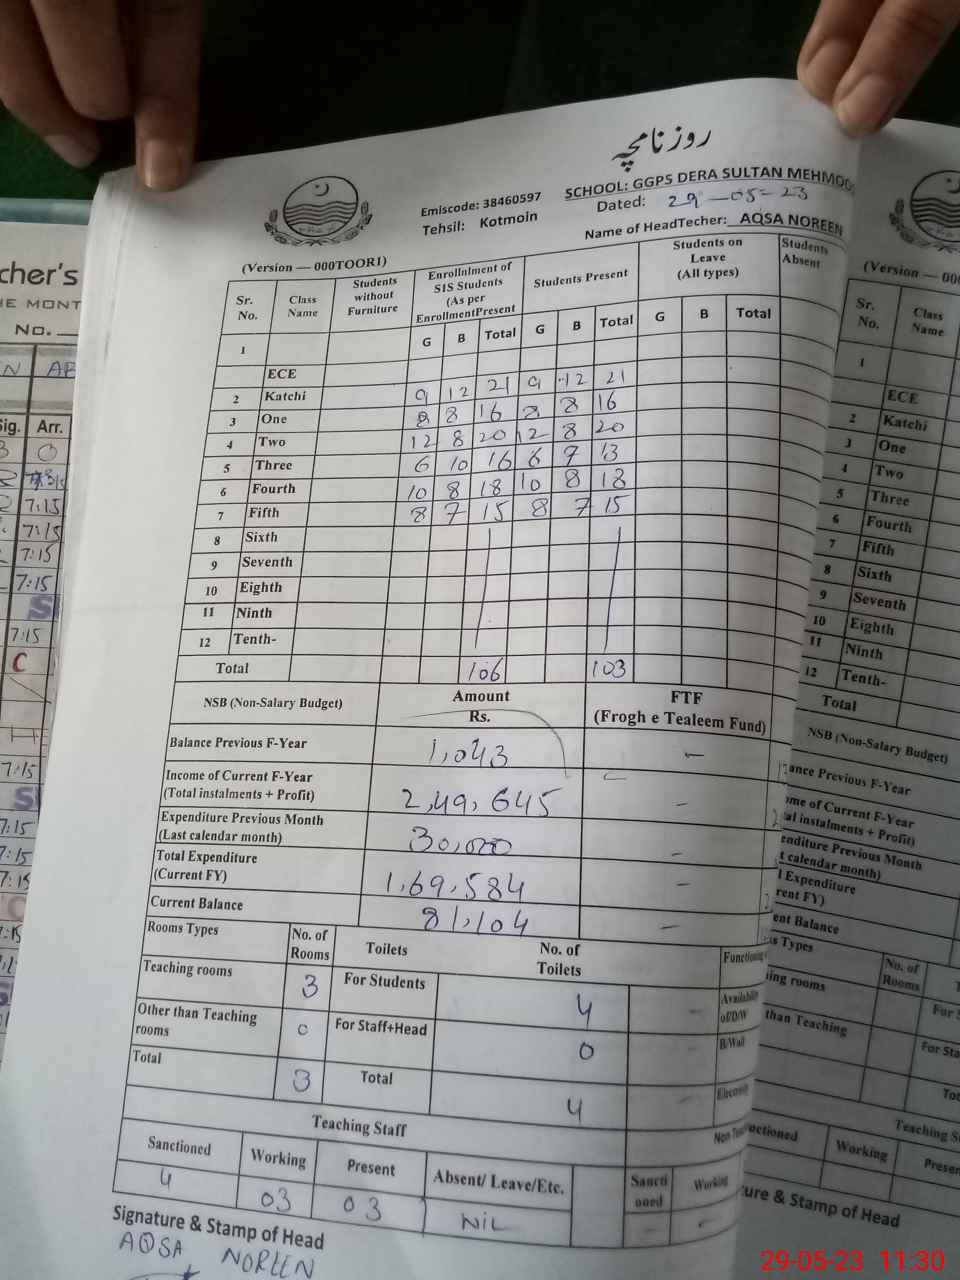 روزنامچہ
SCHOOL: GGPS DERA SULTAN MEHMOO
Emiscode: 38460597
Dated: 29-05-23
Tehsil: Kotmoin
Name of HeadTecher: AQSA NOREEN
(Version — 000TOOR1)
Sr. No. Class Name Students without Furniture Enrollnlment of SIS Students (As per EnrollmentPresent Students Present Students on Leave (All types) Students Absent
G B Total G B Total G B Total
1
ECE
2 Katchi 9 12 21 9 12 21
3 One 8 8 16 8 8 16
4 Two 12 8 20 12 8 20
5 Three 6 10 16 6 7 13
6 Fourth 10 8 18 10 8 18
7 Fifth 8 7 15 8 7 15
8 Sixth
9 Seventh
10 Eighth
11 Ninth
12 Tenth-
Total 106 103
NSB (Non-Salary Budget) Amount Rs. FTF (Frogh e Tealeem Fund)
Balance Previous F-Year 1,043 -
Income of Current F-Year (Total instalments + Profit) 2,49,645 -
Expenditure Previous Month (Last calendar month) 30,000 -
Total Expenditure (Current FY) 1,69,584 -
Current Balance 81,104 -
Rooms Types No. of Rooms Toilets No. of Toilets Functioning
Teaching rooms 3 For Students 4 - Availability of/D/W
Other than Teaching rooms 0 For Staff+Head 0 B/Wall
Total 3 Total 4 - Electricity
Teaching Staff
Sanctioned Working Present Absent/ Leave/Etc. Sancti oned Working
4 03 03 NIL - -
Signature & Stamp of Head
AQSA NOREEN
cher's
HE MONT
No.
Sig. Arr.
7:15
7:15
7:15
7:15
7:15
C
7:15
7:15
7:15
7:15
(Version — 000
Sr. No. Class Name
1
ECE
2 Katchi
3 One
4 Two
5 Three
6 Fourth
7 Fifth
8 Sixth
9 Seventh
10 Eighth
11 Ninth
12 Tenth-
Total
NSB (Non-Salary Budget)
ance Previous F-Year
me of Current F-Year
al instalments + Profit)
enditure Previous Month
t calendar month)
l Expenditure
rent FY)
ent Balance
s Types No. of Rooms
ing rooms For S
than Teaching For Sta
Tot
Teaching S
nctioned Working Presen
ture & Stamp of Head
29-05-23 11:30